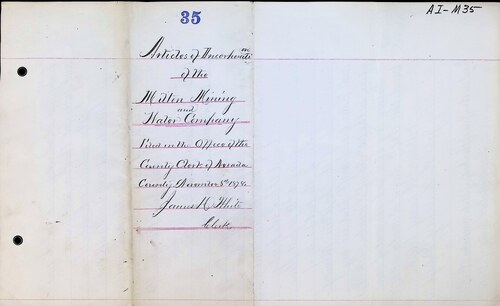 35
AI-M35
Articles of Incorporation
of the
Mining
and
Water Company
Filed in the Office of the
County Clerk of Nevada
County November 8th
James
Clerk